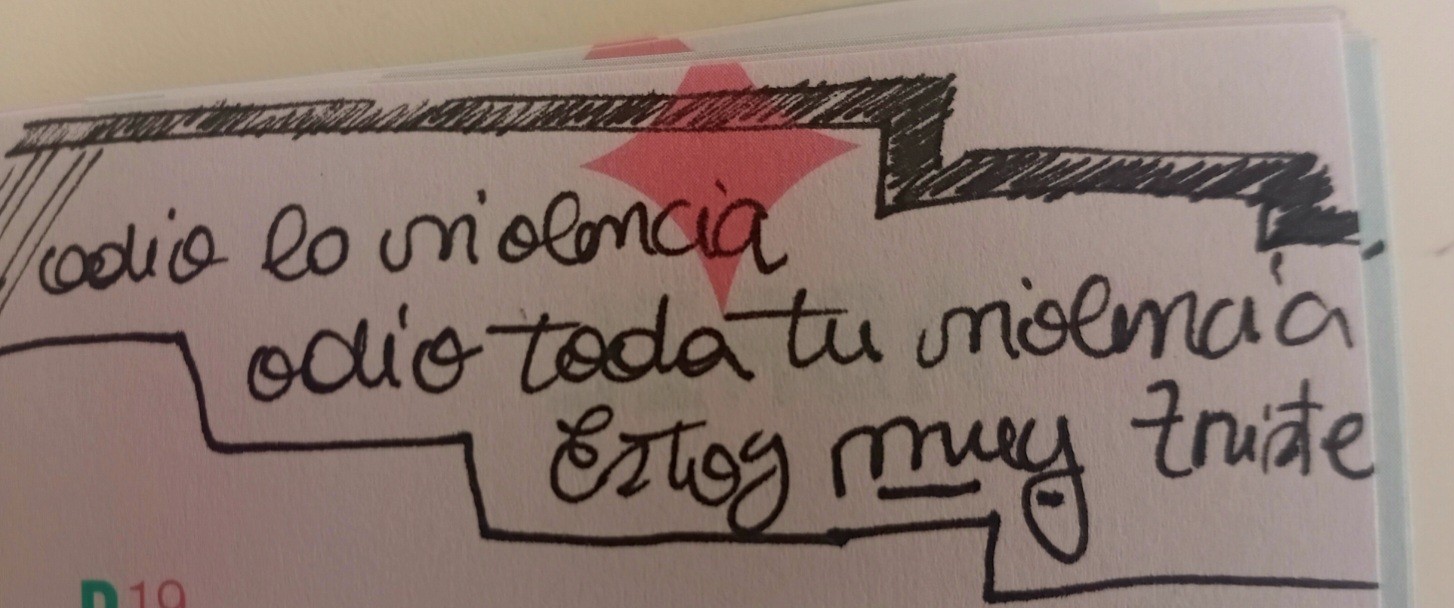 odio la violencia
odio toda tu violencia
Estoy muy triste
D 19